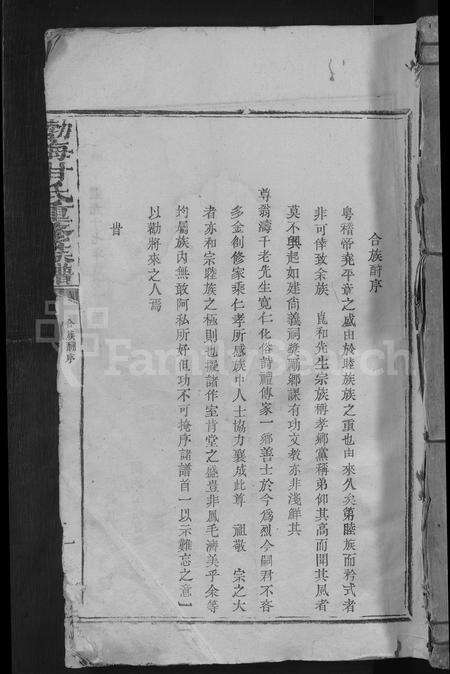 合族酧序
粵稽帝堯平章之盛由於睦族族之重也由來久矣第睦族而矜式者
非可倖致余族 崑和先生宗族稱孝鄉黨稱弟仰其高而聞其夙者
莫不興起如建尚義祠奬瀛鄉課有功文教亦非淺鮮其
尊翁濤千老先生寬仁化俗詩禮傳家一鄉善士於今為烈今嗣君不吝
多金創修家乘仁孝所感族中人士協力襄成此尊 祖敬 宗之大
者亦和宗睦族之極則也擬諸作室肯堂之盛豈非鳳毛濟美乎余等
均屬族內無敢阿私所好但功不可掩序諸譜首一以示難忘之意一
以勸將來之人焉
昔
渤海甘氏重修族譜
合族酧序
一
FamilySearch